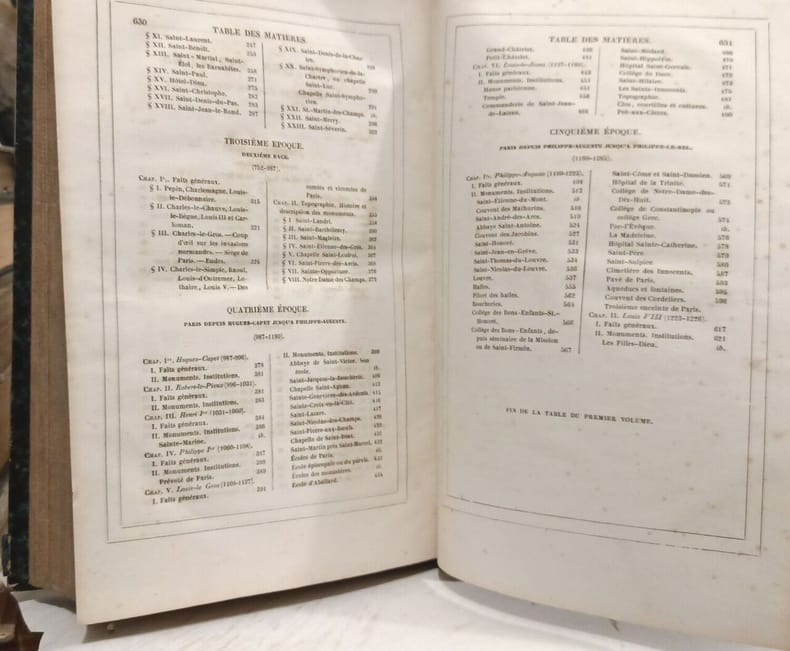 630
TABLE DES MATIÈRES.
§ XI. Saint-Laurent. 247
§ XII. Saint-Benoît.
§ XIII. Saint-Martial; Saint-
Éloi, les Barnabites.
§ XIV. Saint-Paul.
§ XV. Hôtel-Dieu. 271
§ XVI. Saint-Christophe.
§ XVII. Saint-Denis-du-Pas.
§ XVIII. Saint-Jean-le-Rond. 287
§ XIX. Saint-Denis-de-la-Char-
tre.
§ XX. Saint-Symphorien-de-la-
Chartre, ou chapelle
Saint-Luc.
Chapelle Saint-Sympho-
rien.
§ XXI. St.-Martin-des-Champs. ib.
§ XXII. Saint-Merry.
§ XXIII. Saint-Séverin.
TROISIÈME ÉPOQUE.
DEUXIÈME RACE.
(752-987.)
CHAP. Ier. Faits généraux.
§ I. Pepin, Charlemagne, Louis-
le-Débonnaire. 315
§ II. Charles-le-Chauve, Louis-
le-Bègue, Louis III et Car-
loman. 321
§ III. Charles-le-Gros. — Coup
d'œil sur les invasions
normandes. — Siége de
Paris. — Eudes.
§ IV. Charles-le-Simple, Raoul,
Louis-d'Outremer, Lo-
thaire, Louis V. — Des
comtes et vicomtes de
Paris.
CHAP. II. Topographie, Histoire et
description des monuments.
§ I Saint-Landri.
§ II. Saint-Barthélemy.
§ III. Saint-Magloire.
§ IV. Saint-Étienne-des-Grés.
§ V. Chapelle Saint-Leufroi.
§ VI. Saint-Pierre-des-Arcis.
§ VII. Sainte-Opportune.
§ VIII. Notre Dame des Champs.
QUATRIÈME ÉPOQUE.
PARIS DEPUIS HUGUES-CAPET JUSQU'A PHILIPPE-AUGUSTE.
(987-1180).
CHAP. Ier. Hugues-Capet (987-996).
I. Faits généraux.
II. Monuments, Institutions. 381
CHAP. II. Robert-le-Pieux (996-1031).
I. Faits généraux.
II. Monuments. Institutions.
CHAP. III. Henri Ier (1031-1060).
I. Faits généraux.
II. Monuments. Institutions.
Sainte-Marine. ib.
CHAP. IV. Philippe Ier (1060-1108).
I. Faits généraux. 387
II. Monuments. Institutions.
Prévoté de Paris.
CHAP. V. Louis-le Gros (1108-1137).
I. Faits généraux. 391
II. Monuments. Institutions.
Abbaye de Saint-Victor. Son
école. ib.
Saint-Jacques-la-Boucherie.
Chapelle Saint-Agnan.
Sainte-Geneviève-des-Ardents. 415
Sainte-Croix-en-la-Cité.
Saint-Lazare. 417
Saint-Nicolas-des-Champs.
Saint-Pierre-aux-Bœufs.
Chapelle de Saint-Bont.
Saint-Martin près Saint-Marcel.
Écoles de Paris. ib.
École épiscopale ou du parvis.
Écoles des monastères. ib.
École d'Abailard.
TABLE DES MATIÈRES. 631
Grand-Châtelet.
Petit-Châtelet.
CHAP. VI. Louis-le-Jeune (1137-1180).
I. Faits généraux.
II. Monuments. Institutions.
Hanse parisienne.
Temple.
Commanderie de Saint-Jean-
de-Latran.
Saint-Médard.
Saint-Hippolyte.
Hôpital Saint-Gervais.
Collège de Dace.
Saint-Hilaire.
Les Saints-Innocents.
Topographie.
Clos, courtilles et cultures. ib.
Pré-aux-Clercs.
CINQUIÈME ÉPOQUE.
PARIS DEPUIS PHILIPPE-AUGUSTE JUSQU'A PHILIPPE-LE-BEL.
CHAP. Ier. Philippe-Auguste (1180-1223).
I. Faits généraux.
II. Monuments. Institutions. 517
Saint-Étienne-du-Mont. ib.
Couvent des Mathurins. 516
Saint-André-des-Arcs. 519
Abbaye Saint-Antoine. 524
Couvent des Jacobins. 527
Saint-Honoré. 531
Saint-Jean-en-Grève. 533
Saint-Thomas-du-Louvre. 534
Saint-Nicolas-du-Louvre. 536
Louvre. 537
Halles. 555
Pilori des halles. 562
Boucheries. 564
Collége des Bons-Enfants-St.-
Honoré. 566
Collége des Bons-Enfants, de-
puis séminaire de la Mission
ou de Saint-Firmin. 567
Saint-Côme et Saint-Damien. 569
Hôpital de la Trinité. 571
Collége de Notre-Dame-des-
Dix-Huit. 573
Collége de Constantinople ou
collége Grec. 574
For-l'Évêque. ib.
La Madeleine. 576
Hôpital Sainte-Catherine. 578
Saint-Père. 579
Saint-Sulpice.
Cimetière des Innocents. 587
Pavé de Paris. 593
Aqueducs et fontaines. 595
Couvent des Cordeliers. 598
Troisième enceinte de Paris.
CHAP. II. Louis VIII (1223-1226).
I. Faits généraux. 617
II. Monuments. Institutions. 621
Les Filles-Dieu. ib.
FIN DE LA TABLE DU PREMIER VOLUME.